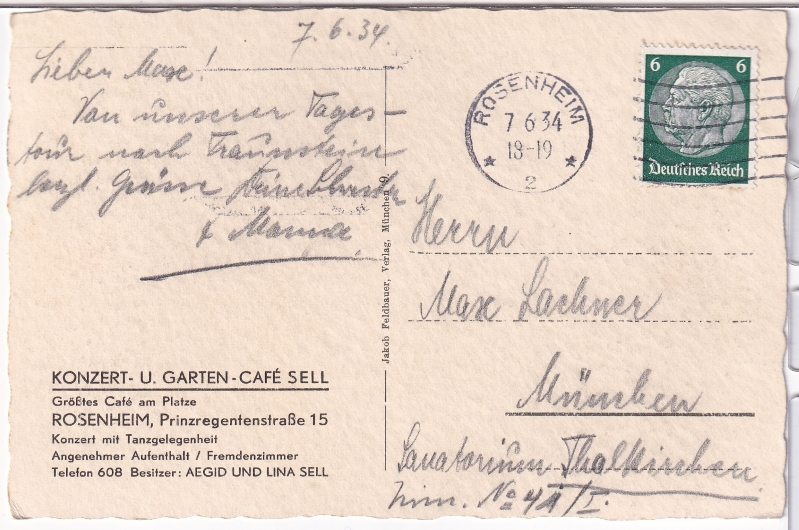 7.6.34.
Lieben Max!
Von unserer Tages-
tour nach Traunstein
herzl. Grüsse Deine
& Mama
KONZERT- U. GARTEN-CAFÉ SELL
Größtes Café am Platze
ROSENHEIM, Prinzregentenstraße 15
Konzert mit Tanzgelegenheit
Angenehmer Aufenthalt / Fremdenzimmer
Telefon 608 Besitzer: AEGID UND LINA SELL
Jakob Feldbauer, Verlag, München 9.
ROSENHEIM
7 6 34
18-19
* 2 *
6 6
Deutsches Reich
Herrn
Max Lachner
München
Sanatorium Thalkirchen
Zimm. No 41/I.